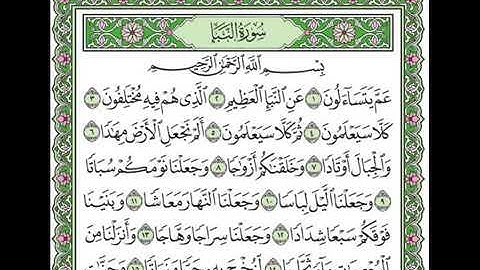 سُورَةُ النَّبَإِ
بِسْمِ اللَّهِ الرَّحْمَٰنِ الرَّحِيمِ
عَمَّ يَتَسَاءَلُونَ ١ عَنِ النَّبَإِ الْعَظِيمِ ٢ الَّذِي هُمْ فِيهِ مُخْتَلِفُونَ ٣
كَلَّا سَيَعْلَمُونَ ٤ ثُمَّ كَلَّا سَيَعْلَمُونَ ٥ أَلَمْ نَجْعَلِ الْأَرْضَ مِهَٰدًا ٦
وَالْجِبَالَ أَوْتَادًا ٧ وَخَلَقْنَٰكُمْ أَزْوَٰجًا ٨ وَجَعَلْنَا نَوْمَكُمْ سُبَاتًا
٩ وَجَعَلْنَا اللَّيْلَ لِبَاسًا ١٠ وَجَعَلْنَا النَّهَارَ مَعَاشًا ١١ وَبَنَيْنَا
فَوْقَكُمْ سَبْعًا شِدَادًا ١٢ وَجَعَلْنَا سِرَاجًا وَهَّاجًا ١٣ وَأَنْزَلْنَا مِنَ